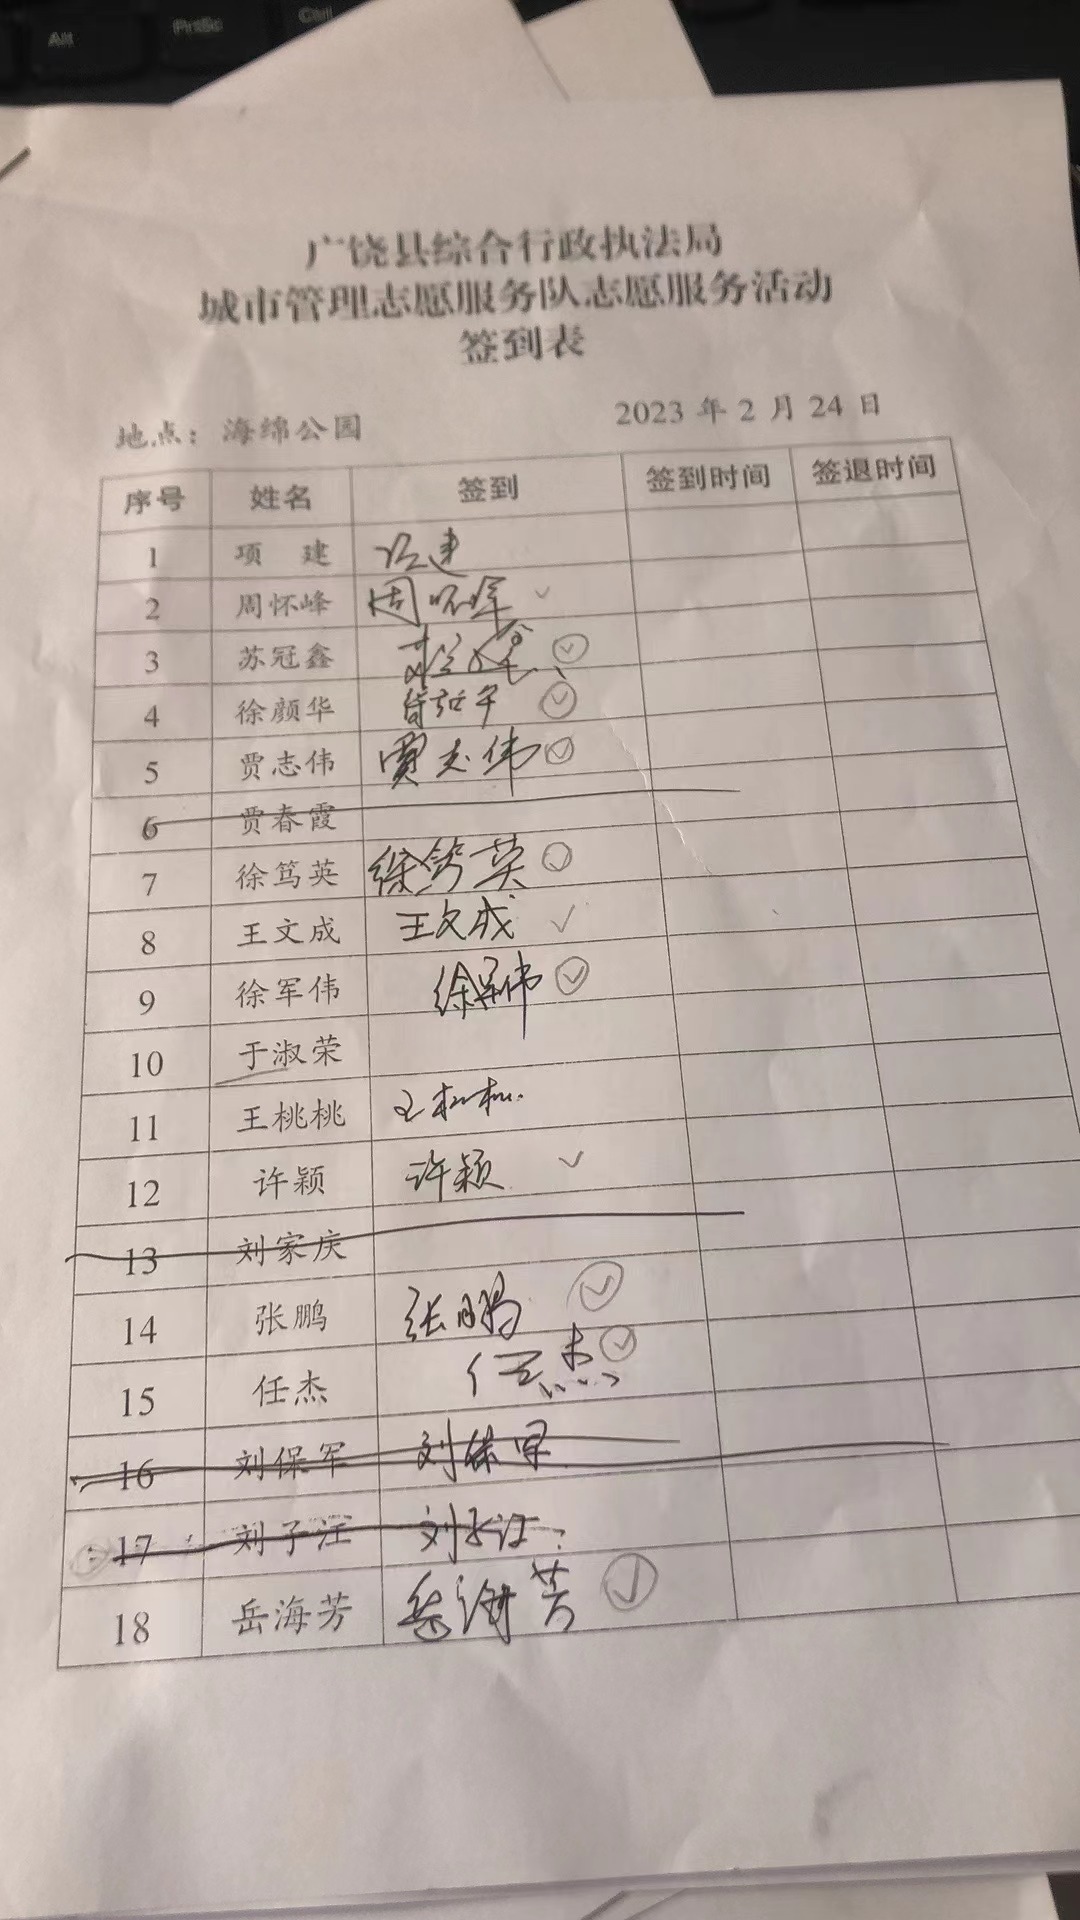 Alt PrtSc Ctrl
广饶县综合行政执法局
城市管理志愿服务队志愿服务活动
签到表
地点：海绵公园 2023 年 2 月 24 日
序号 姓名 签到 签到时间 签退时间
1 项 建 项建
2 周怀峰 周怀峰
3 苏冠鑫 苏冠鑫
4 徐颜华
5 贾志伟 贾志伟
6 贾春霞
7 徐笃英 徐笃英
8 王文成 王文成
9 徐军伟 徐军伟
10 于淑荣
11 王桃桃 王桃桃
12 许颖 许颖
13 刘家庆
14 张鹏 张鹏
15 任杰 任杰
16 刘保军 刘保军
17 刘子汪 刘子汪
18 岳海芳 岳海芳